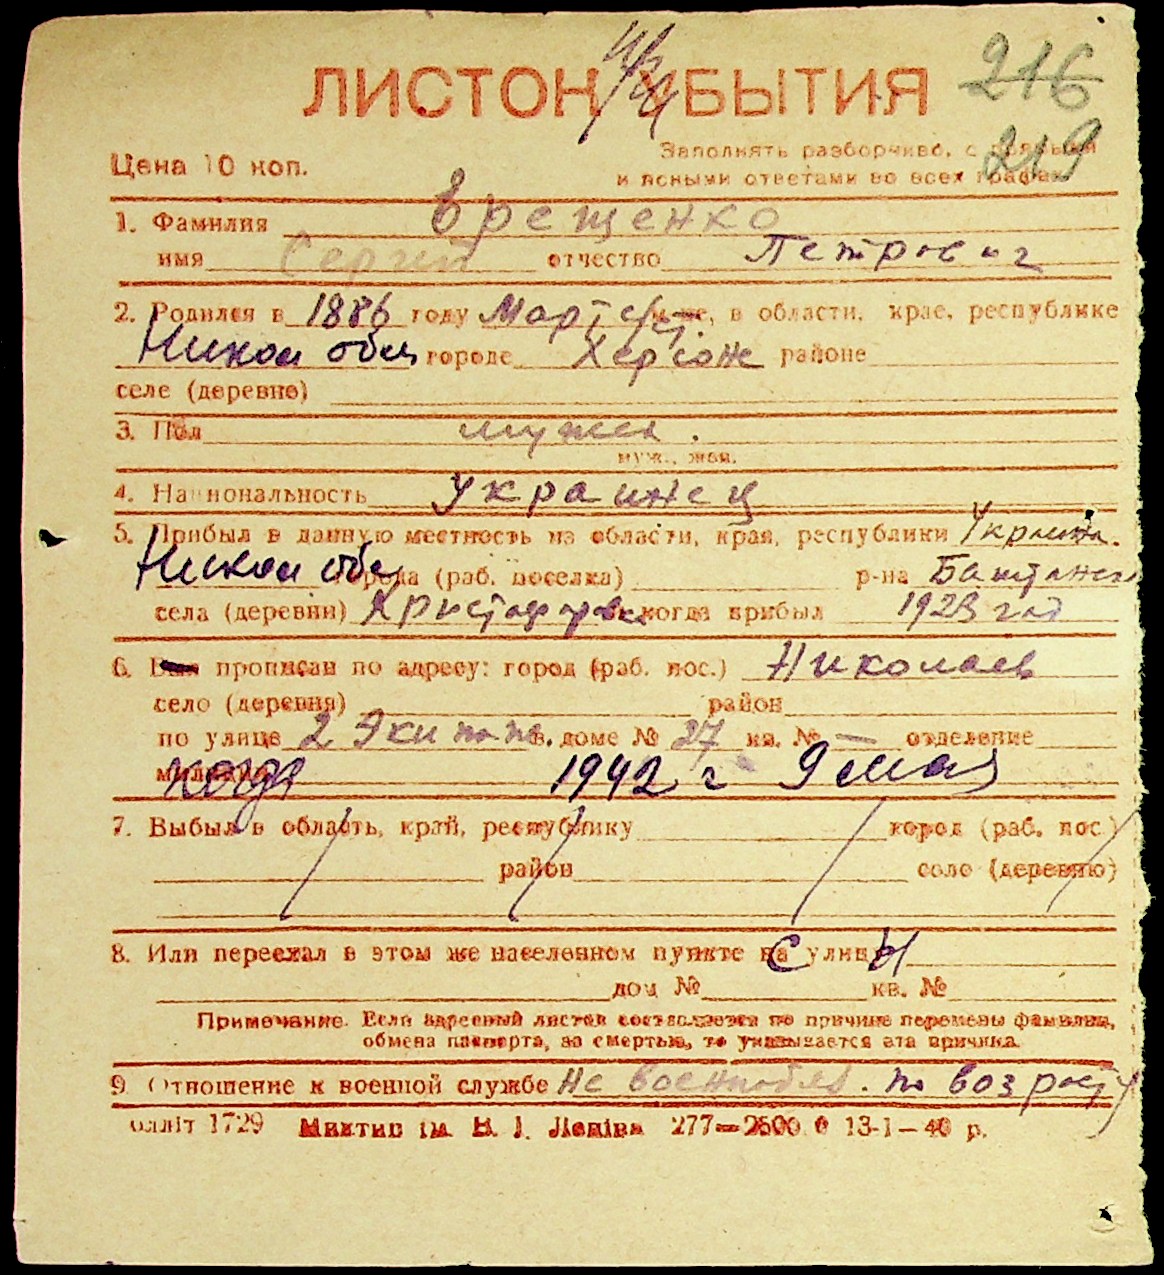 216
ЛИСТОК УБЫТИЯ
219
Цена 10 коп.
Заполнять разборчиво, с полными
и ясными ответами во всех графах
1. Фамилия Врещенко
имя Сергий отчество Петрович
2. Родился в 1886 году Март м-це, в области, крае, республике
Никол обл городе Херсоне районе
селе (деревне)
3. Пол мужск.
муж., жен.
4. Национальность Украинец
5. Прибыл в данную местность из области, края, республики Украина.
Никол обл города (раб. поселка) р-на Баштанск
села (деревни) когда прибыл 1923 год
6. прописан по адресу: город (раб. пос.) Николаев
село (деревня) район
по улице 2 Экипаж. доме № 27 кв. № — отделение
милиции когда 1942 г 9 мая
7. Выбыл в область, край, республику город (раб. пос.)
район село (деревню)
8. Или переехал в этом же населенном пункте на улицу
дом № кв. №
Примечание. Если адресный листок составляется по причине перемены фамилии,
обмена паспорта, за смертью, то указывается эта причина.
9. Отношение к военной службе не военнообяз. по возрасту
олліт 1729 Миктип ім. В. І. Леніна 277—2500 0 13-1—40 р.